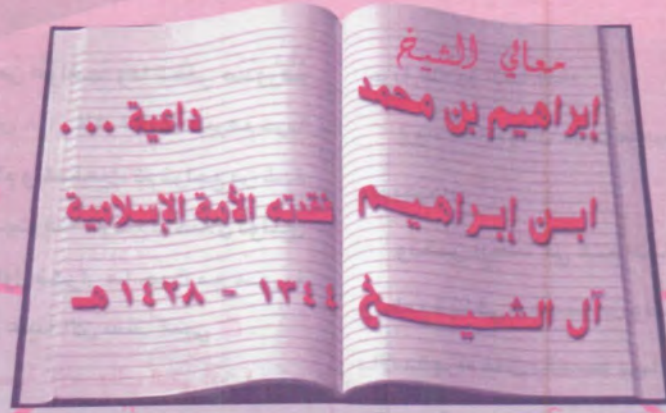 معالي الشيخ
إبراهيم بن محمد
ابن إبراهيم
آل الشيــــخ
داعية ...
فقدته الأمة الإسلامية
١٣٤٤ - ١٤٢٨ هـ